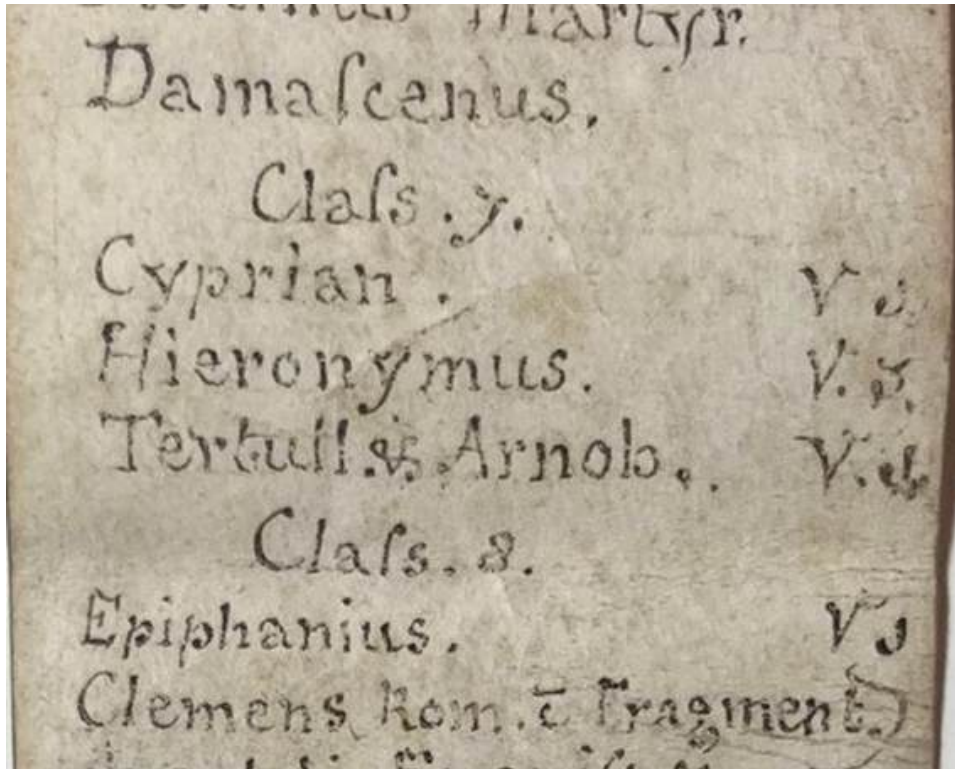 Martyr.
Damaſcenus.
Claſs. 7.
Cyprian.
Hieronymus. V.
Tertull. & Arnob. V.
Claſs. 8.
Epiphanius. V
Clemens Rom. c̄ Fragment.